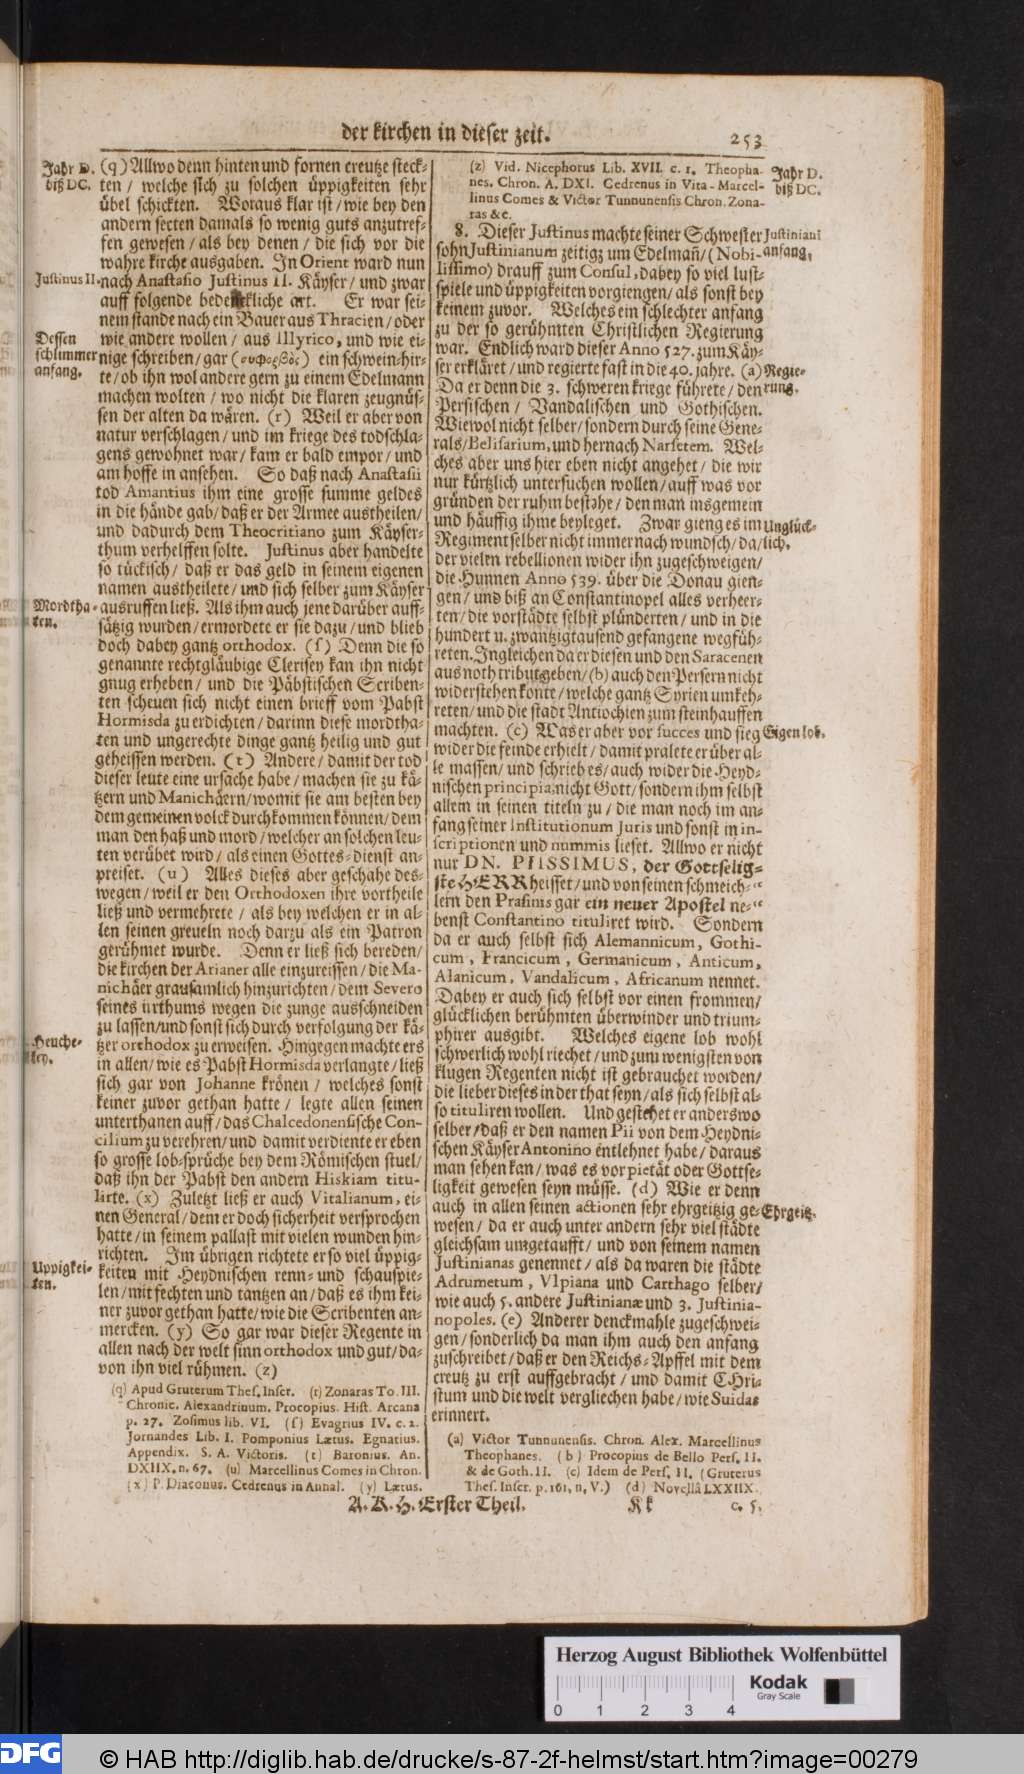 der kirchen in dieser zeit.
253
Jahr D.
biß DC.
(q) Allwo denn hinten und fornen creutze steck-
ten / welche sich zu solchen üppigkeiten sehr
übel schickten. Woraus klar ist / wie bey den
andern secten damals so wenig guts anzutref-
fen gewesen / als bey denen / die sich vor die
wahre kirche ausgaben. In Orient ward nun
Justinus II.
nach Anastasio Justinus II. Käyser / und zwar
auff folgende bedenckliche art. Er war sei-
nem stande nach ein Bauer aus Thracien / oder
Dessen
schlimmer
anfang.
wie andere wollen / aus Illyrico, und wie ei-
nige schreiben / gar (συφορβὸς) ein schwein-hir-
te / ob ihn wol andere gern zu einem Edelmann
machen wolten / wo nicht die klaren zeugnüs-
sen der alten da wären. (r) Weil er aber von
natur verschlagen / und im kriege des todschla-
gens gewohnet war / kam er bald empor / und
am hoffe in ansehen. So daß nach Anastasii
tod Amantius ihm eine grosse summe geldes
in die hände gab / daß er der Armee austheilen /
und dadurch dem Theocritiano zum Käyser-
thum verhelffen solte. Justinus aber handelte
so tückisch / daß er das geld in seinem eigenen
namen austheilete / und sich selber zum Käyser
Mordtha-
ten.
ausruffen ließ. Als ihm auch jene darüber auff-
sätzig wurden / ermordete er sie dazu / und blieb
doch dabey gantz orthodox. (ſ) Denn die so
genannte rechtgläubige Clerisey kan ihn nicht
gnug erheben / und die Päbstischen Scriben-
ten scheuen sich nicht einen brieff vom Pabst
Hormisda zu erdichten / darinn diese mordtha-
ten und ungerechte dinge gantz heilig und gut
geheissen werden. (t) Andere / damit der tod
dieser leute eine ursache habe / machen sie zu kä-
tzern und Manichäern / womit sie am besten bey
dem gemeinen volck durchkommen können / dem
man den haß und mord / welcher an solchen leu-
ten verübet wird / als einen Gottes-dienst an-
preiset. (u) Alles dieses aber geschahe des-
wegen / weil er den Orthodoxen ihre vortheile
ließ und vermehrete / als bey welchen er in al-
len seinen greueln noch darzu als ein Patron
gerühmet wurde. Denn er ließ sich bereden /
die kirchen der Arianer alle einzureissen / die Ma-
nichäer grausamlich hinzurichten / dem Severo
seines irrthums wegen die zunge ausschneiden
zu lassen / und sonst sich durch verfolgung der kä-
Heuche-
ley.
tzer orthodox zu erweisen. Hingegen machte ers
in allen / wie es Pabst Hormisda verlangte / ließ
sich gar von Johanne krönen / welches sonst
keiner zuvor gethan hatte / legte allen seinen
unterthanen auff / das Chalcedonensische Con-
cilium zu verehren / und damit verdiente er eben
so grosse lob-sprüche bey dem Römischen stuel /
daß ihn der Pabst den andern Hiskiam titu-
lirte. (x) Zuletzt ließ er auch Vitalianum, ei-
nen General / dem er doch sicherheit versprochen
hatte / in seinem pallast mit vielen wunden hin-
richten. Im übrigen richtete er so viel üppig-
Uppigkei-
ten.
keiten mit Heydnischen renn- und schauspie-
len / mit fechten und tantzen an / daß es ihm kei-
ner zuvor gethan hatte / wie die Scribenten an-
mercken. (y) So gar war dieser Regente in
allen nach der welt sinn orthodox und gut / da-
von ihn viel rühmen. (z)
(q) Apud Gruterum Thes. Inscr. (r) Zonaras To. III.
Chronic. Alexandrinum. Procopius. Hist. Arcana
p. 27. Zosimus lib. VI. (ſ) Evagrius IV. c. 2.
Jornandes Lib. I. Pomponius Lætus. Egnatius.
Appendix. S. A. Victoris. (t) Baronius. An.
DXIIX. n. 67. (u) Marcellinus Comes in Chron.
(x) P. Diaconus. Cedrenus in Annal. (y) Lætus.
(z) Vid. Nicephorus Lib. XVII. c. 1. Theopha-
nes. Chron. A. DXI. Cedrenus in Vita - Marcel-
linus Comes & Victor Tunnunensis Chron. Zona-
ras &c.
Jahr D.
biß DC.
8. Dieser Justinus machte seiner Schwester
sohn Justinianum zeitig zum Edelmañ / (Nobi-
Justiniani
anfang,
lissimo) drauff zum Consul, dabey so viel lust-
spiele und üppigkeiten vorgiengen / als sonst bey
keinem zuvor. Welches ein schlechter anfang
zu der so gerühmten Christlichen Regierung
war. Endlich ward dieser Anno 527. zum Käy-
ser erkläret / und regierte fast in die 40. jahre. (a)
Regie-
rung.
Da er denn die 3. schweren kriege führete / den
Persischen / Vandalischen und Gothischen.
Wiewol nicht selber / sondern durch seine Gene-
rals / Belisarium, und hernach Narsetem. Wel-
ches aber uns hier eben nicht angehet / die wir
nur kürtzlich untersuchen wollen / auff was vor
gründen der ruhm bestehe / den man insgemein
und häuffig ihme beyleget. Zwar gieng es im
Unglück-
lich.
Regiment selber nicht immer nach wundsch / da /
der vielen rebellionen wider ihn zugeschweigen /
die Hunnen Anno 539. über die Donau gien-
gen / und biß an Constantinopel alles verheer-
ten / die vorstädte selbst plünderten / und in die
hundert u. zwantzigtausend gefangene wegfüh-
reten. Ingleichen da er diesen und den Saracenen
aus noth tribut geben / (b) auch den Persern nicht
widerstehen konte / welche gantz Syrien umkeh-
reten / und die stadt Antiochien zum steinhauffen
machten. (c) Was er aber vor succes und sieg
Eigen lob.
wider die feinde erhielt / damit pralete er über al-
le massen / und schrieb es / auch wider die Heyd-
nischen principia, nicht Gott / sondern ihm selbst
allem in seinen titeln zu / die man noch im an-
fang seiner Institutionum Juris und sonst in in-
scriptionen und nummis lieset. Allwo er nicht
nur DN. PIISSIMUS, der Gottselig-
ste HERR heisset / und von seinen schmeich-“
lern den Prasinis gar ein neuer Apostel ne-“
benst Constantino tituliret wird. Sondern
da er auch selbst sich Alemannicum, Gothi-
cum, Francicum, Germanicum, Anticum,
Alanicum, Vandalicum, Africanum nennet.
Dabey er auch sich selbst vor einen frommen /
glücklichen berühmten überwinder und trium-
phirer ausgibt. Welches eigene lob wohl
schwerlich wohl riechet / und zum wenigsten von
klugen Regenten nicht ist gebrauchet worden /
die lieber dieses in der that seyn / als sich selbst al-
so tituliren wollen. Und gestehet er anderswo
selber / daß er den namen Pii von dem Heydni-
schen Käyser Antonino entlehnet habe / daraus
man sehen kan / was es vor pietät oder Gottse-
ligkeit gewesen seyn müsse. (d) Wie er denn
auch in allen seinen actionen sehr ehrgeitzig ge-
Ehrgeitz.
wesen / da er auch unter andern sehr viel städte
gleichsam umgetaufft / und von seinem namen
Justinianas genennet / als da waren die städte
Adrumetum, Vlpiana und Carthago selber /
wie auch 5. andere Justinianæ und 3. Justinia-
nopoles. (e) Anderer denckmahle zugeschwei-
gen / sonderlich da man ihm auch den anfang
zuschreibet / daß er den Reichs-Apffel mit dem
creutz zu erst auffgebracht / und damit CHri-
stum und die welt vergliechen habe / wie Suidas
erinnert.
(a) Victor Tunnunensis. Chron. Alex. Marcellinus
Theophanes. (b) Procopius de Bello Pers. II.
& de Goth. II. (c) Idem de Pers. II. (Gruterus
Thes. Inscr. p. 161, n, V.) (d) Novellâ LXXIIX.
A. K. H. Erster Theil.
Kk
c. 5.
Herzog August Bibliothek Wolfenbüttel
0 1 2 3 4
Kodak
Gray Scale
DFG
© HAB http://diglib.hab.de/drucke/s-87-2f-helmst/start.htm?image=00279